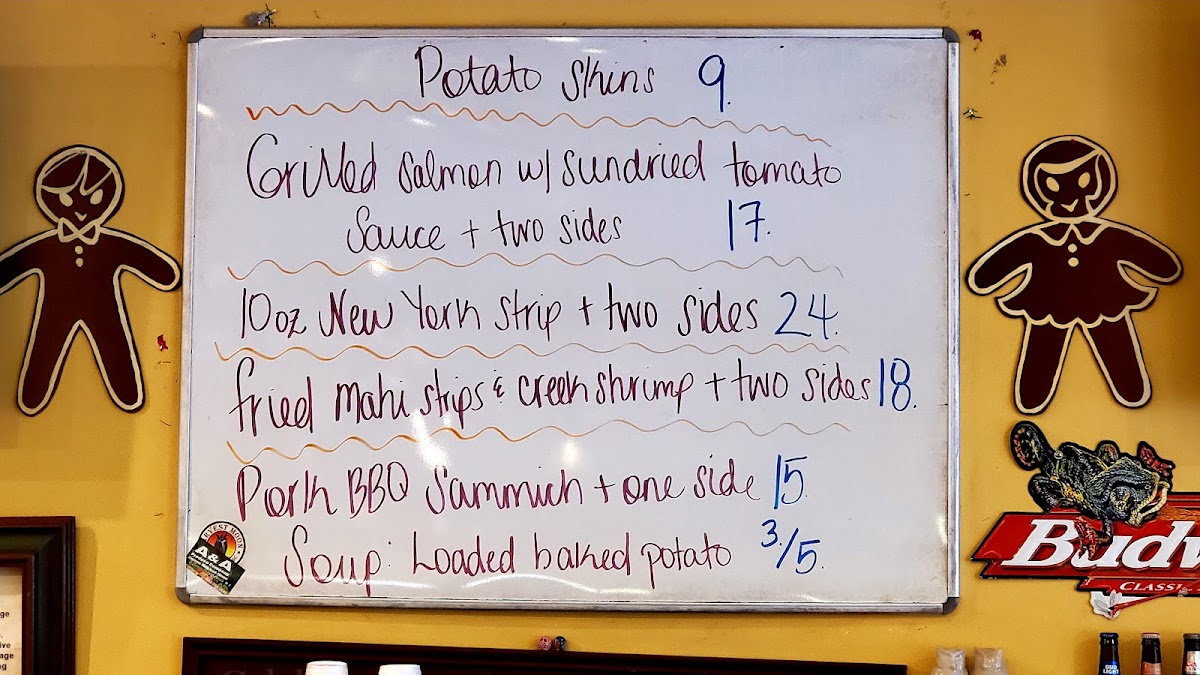 Potato skins 9.
Grilled salmon w/ sundried tomato
Sauce + two sides 17.
10oz New York strip + two sides 24.
fried mahi strips & creek shrimp + two sides 18.
Pork BBQ Sammich + one side 15
Soup: Loaded baked potato 3./5.
A&A
Budw
CLASSIC
BUD
LIGHT